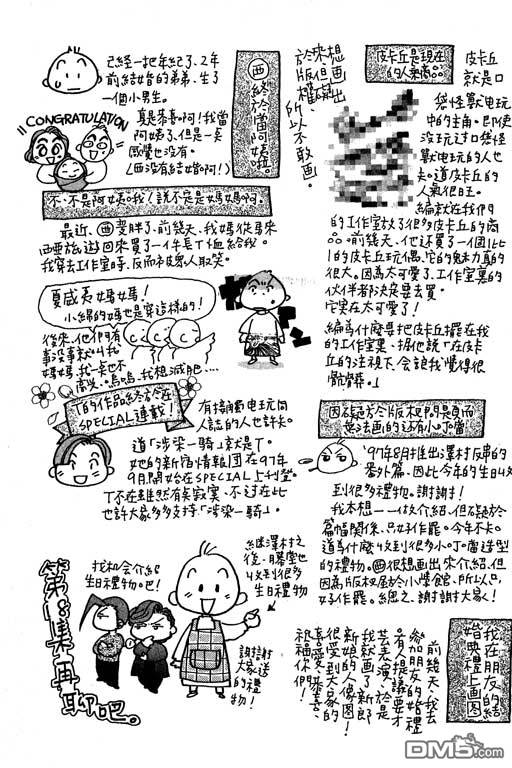 皮卡丘是現在
的人氣商品
皮卡丘
就是口
袋怪獸電玩
中的主角。即使
沒玩过口袋怪
獸電玩的人也
人氣很旺。
的工作室放了很多皮卡丘的商
品。前幾天,他还買了一個1比
1的皮卡丘玩偶,它的魅力真的
很大。因為太可愛了,工作室裏的
伙伴都決定要去買。
它实在太可愛了!
編為什麼要把皮卡丘擺在我
的工作室裏,据他說「在皮卡
丘的注視下,会讓我覺得很
想画
來但
於版權
所以不敢画。
終於當阿姨啦。
已經一把年紀了、2年
前結婚的弟弟,生了
一個小男生。
CONGRATULATION
真是恭喜阿!我當
阿姨了、但是一点
感覺也没有。
(西没有結婚阿!)
不、不是阿姨。我!說不定是媽媽呵。
最近、西変胖了。前幾天、我媽從馬來
西亞旅遊回來買了一件長T恤給我。
我穿去工作室時,反而被衆人取笑。
夏威夷媽媽!
小編的媽也是穿這樣的!
後來、他們有
事没事就叫我
媽媽,我一点也不
高兴。嗚嗚,我想減肥…
T的作品終於在
SPECIAL連載!
有接觸电玩同
人誌的人也許知
道「涉染一騎」就是T。
她的新宿情報團在97年
9月開始在SPECIAL上刊登。
T不在雖然有点寂寞,不过在此
也許大家多多支持「涉染一騎」。
因礙於小版权問是頁而
無法画的还有小叮噹
'97年8月推出澤村兄弟的
番外篇、因此今年的生日收
到很多禮物。謝謝!
我本想一一做介紹、但礙於
篇幅関係,只好作罷。今年不知
道為什麼收到很多小叮噹造型
的禮物。西很想画出來介紹,但
因為版权屬於小學館、所以只
好作罷。總之、謝謝大家!
繼澤村之
後、暮堂也
收到很多
生日禮物
找机会介紹
生日禮物吧!
謝謝
大家送
的禮
物!
第18集再聊吧。
我在朋友的結
婚典禮上画图
前幾天、我去
參加朋友的婚禮
有人提議要才
芸表演、於是
我就画了新郎
新娘的人像图!
很受到大家的
喜愛。恭喜、
祝福你們!
DM5.com